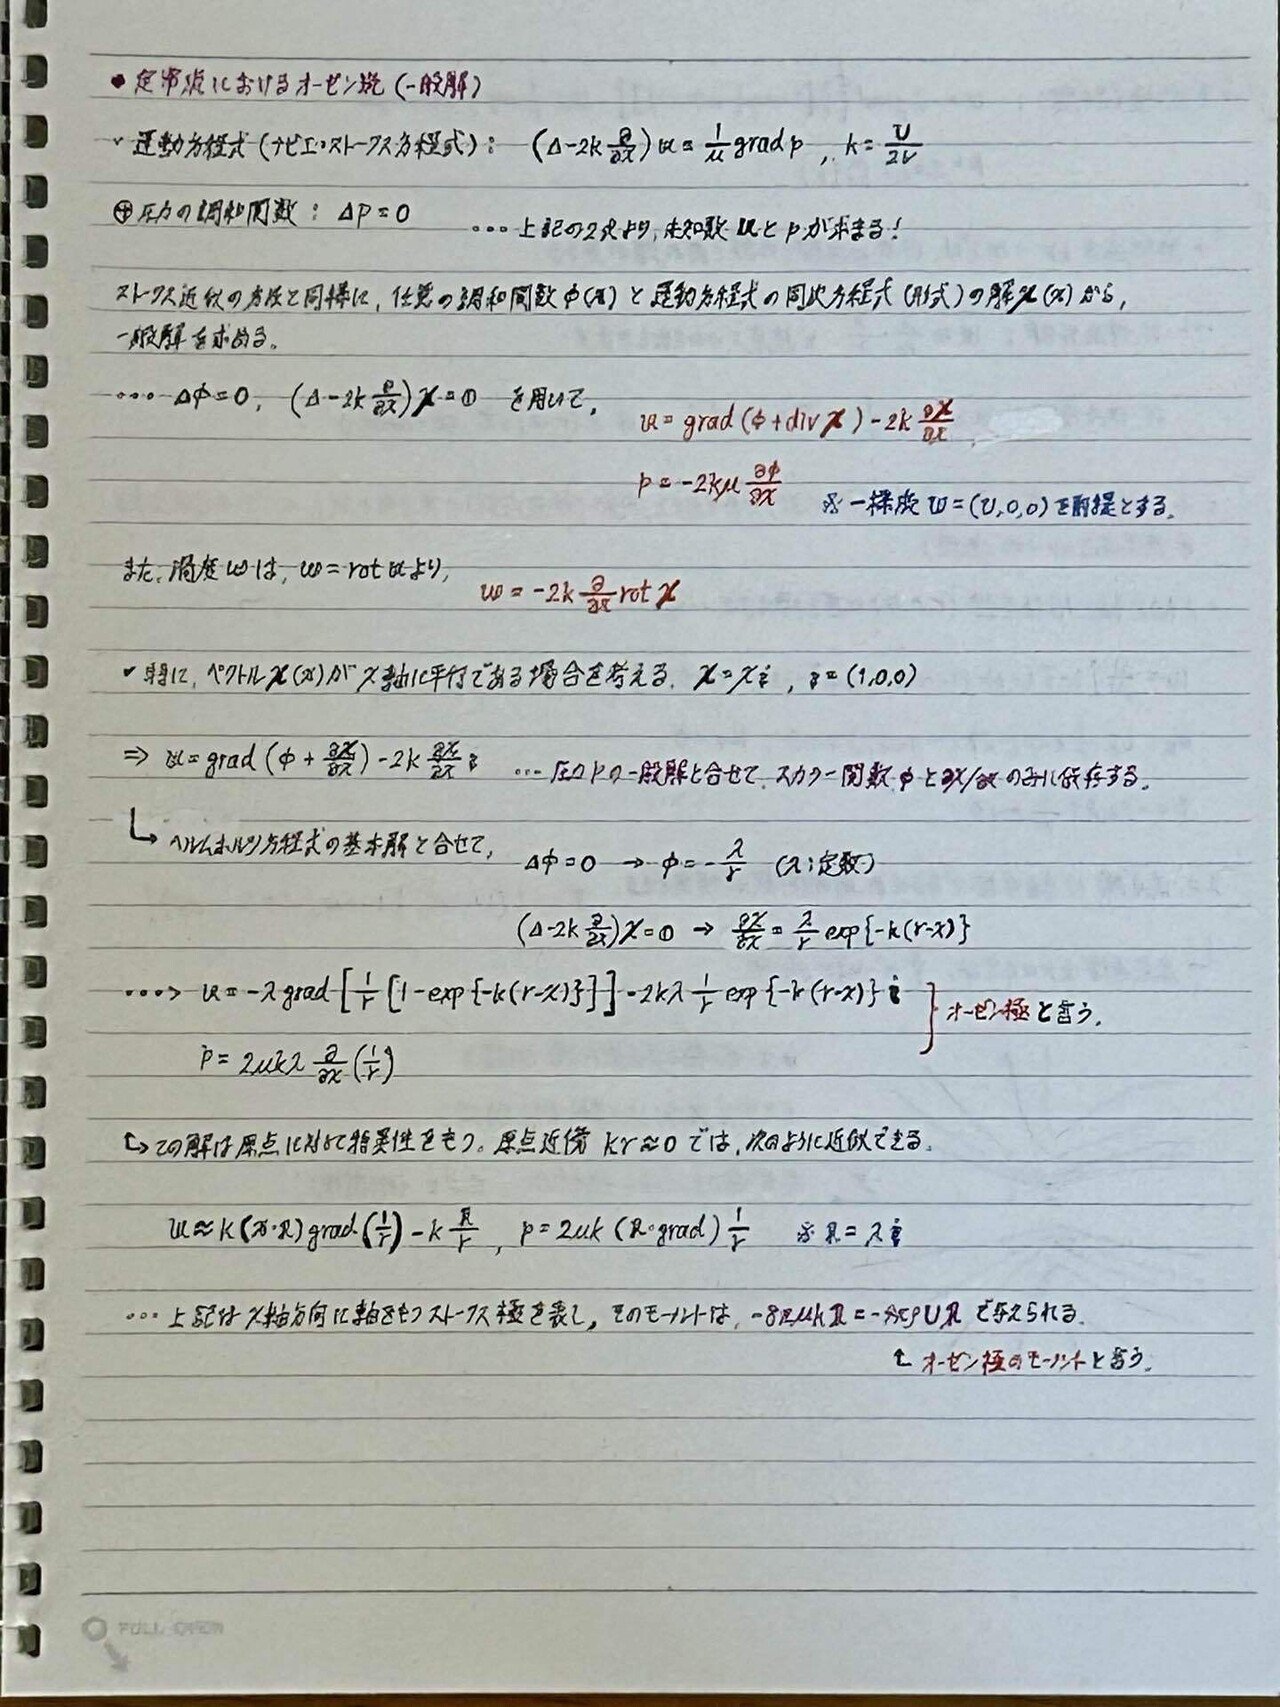 ● 定常流におけるオーゼン流 (一般解)
✓ 運動方程式 (ナビエ・ストークス方程式) : (Δ-2k ∂/∂x) u = 1/μ grad p , k = U/2ν
⊕ 圧力の調和関数 : Δp = 0 … 上記の2式より, 未知数 u と p が求まる!
ストークス近似の方法と同様に, 任意の調和関数 φ(x) と運動方程式の同次方程式 (形式) の解 χ(x) から,
一般解を求める。
… Δφ=0, (Δ-2k ∂/∂x) χ = 0 を用いて,
u = grad (φ+div χ) - 2k ∂χ/∂x
p = -2kμ ∂φ/∂x ※ 一様流 U = (U,0,0) を前提とする。
また, 渦度 ω は, ω = rot u より,
ω = -2k ∂/∂x rot χ
✓ 特に, ベクトル χ(x) が x軸に平行である場合を考える. χ = χ i , i = (1,0,0)
⇒ u = grad (φ + ∂χ/∂x) - 2k ∂χ/∂x i … 圧力 p の一般解と合せて, スカラー関数 φ と ∂χ/∂x のみに依存する。
↳ ヘルムホルツ方程式の基本解と合せて,
Δφ = 0 → φ = - λ/r (λ ; 定数)
(Δ-2k ∂/∂x) χ = 0 → ∂χ/∂x = λ/r exp{-k(r-x)}
…> u = -λ grad [1/r [1-exp{-k(r-x)}]] - 2kλ 1/r exp{-k(r-x)} i
p = 2μkλ ∂/∂x (1/r)
} オーゼン極と言う。
↳ この解は原点に対して特異性をもつ。原点近傍 kr≈0 では, 次のように近似できる。
u ≈ k (x・R) grad (1/r) - k R/r , p = 2μk (R・grad) 1/r ※ R = λ i
… 上記は x軸方向に軸をもつストークス極を表し, そのモーメントは, -8πμkR = -4πρUR で与えられる.
↑ オーゼン極のモーメントと言う。
FULL OPEN